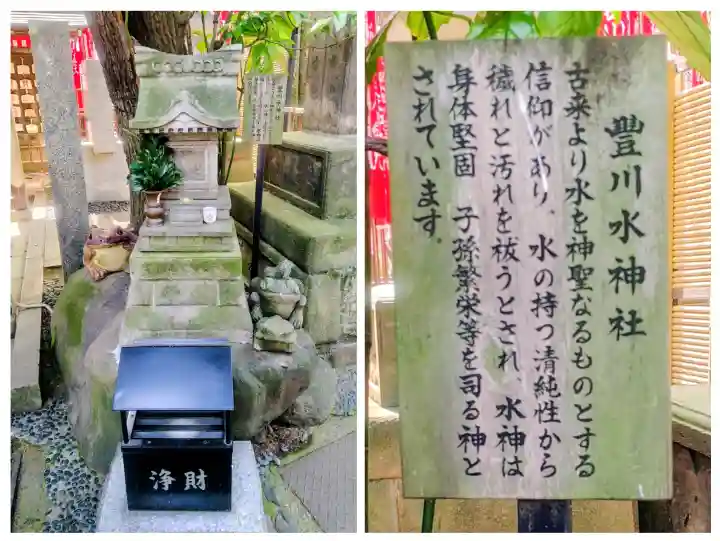 浄財
豊川水神社
古来より水を神聖なるものとする
信仰があり、水の持つ清純性から
穢れと汚れを祓うとされ、水神は
身体堅固 子孫繁栄等を司る神と
されています。